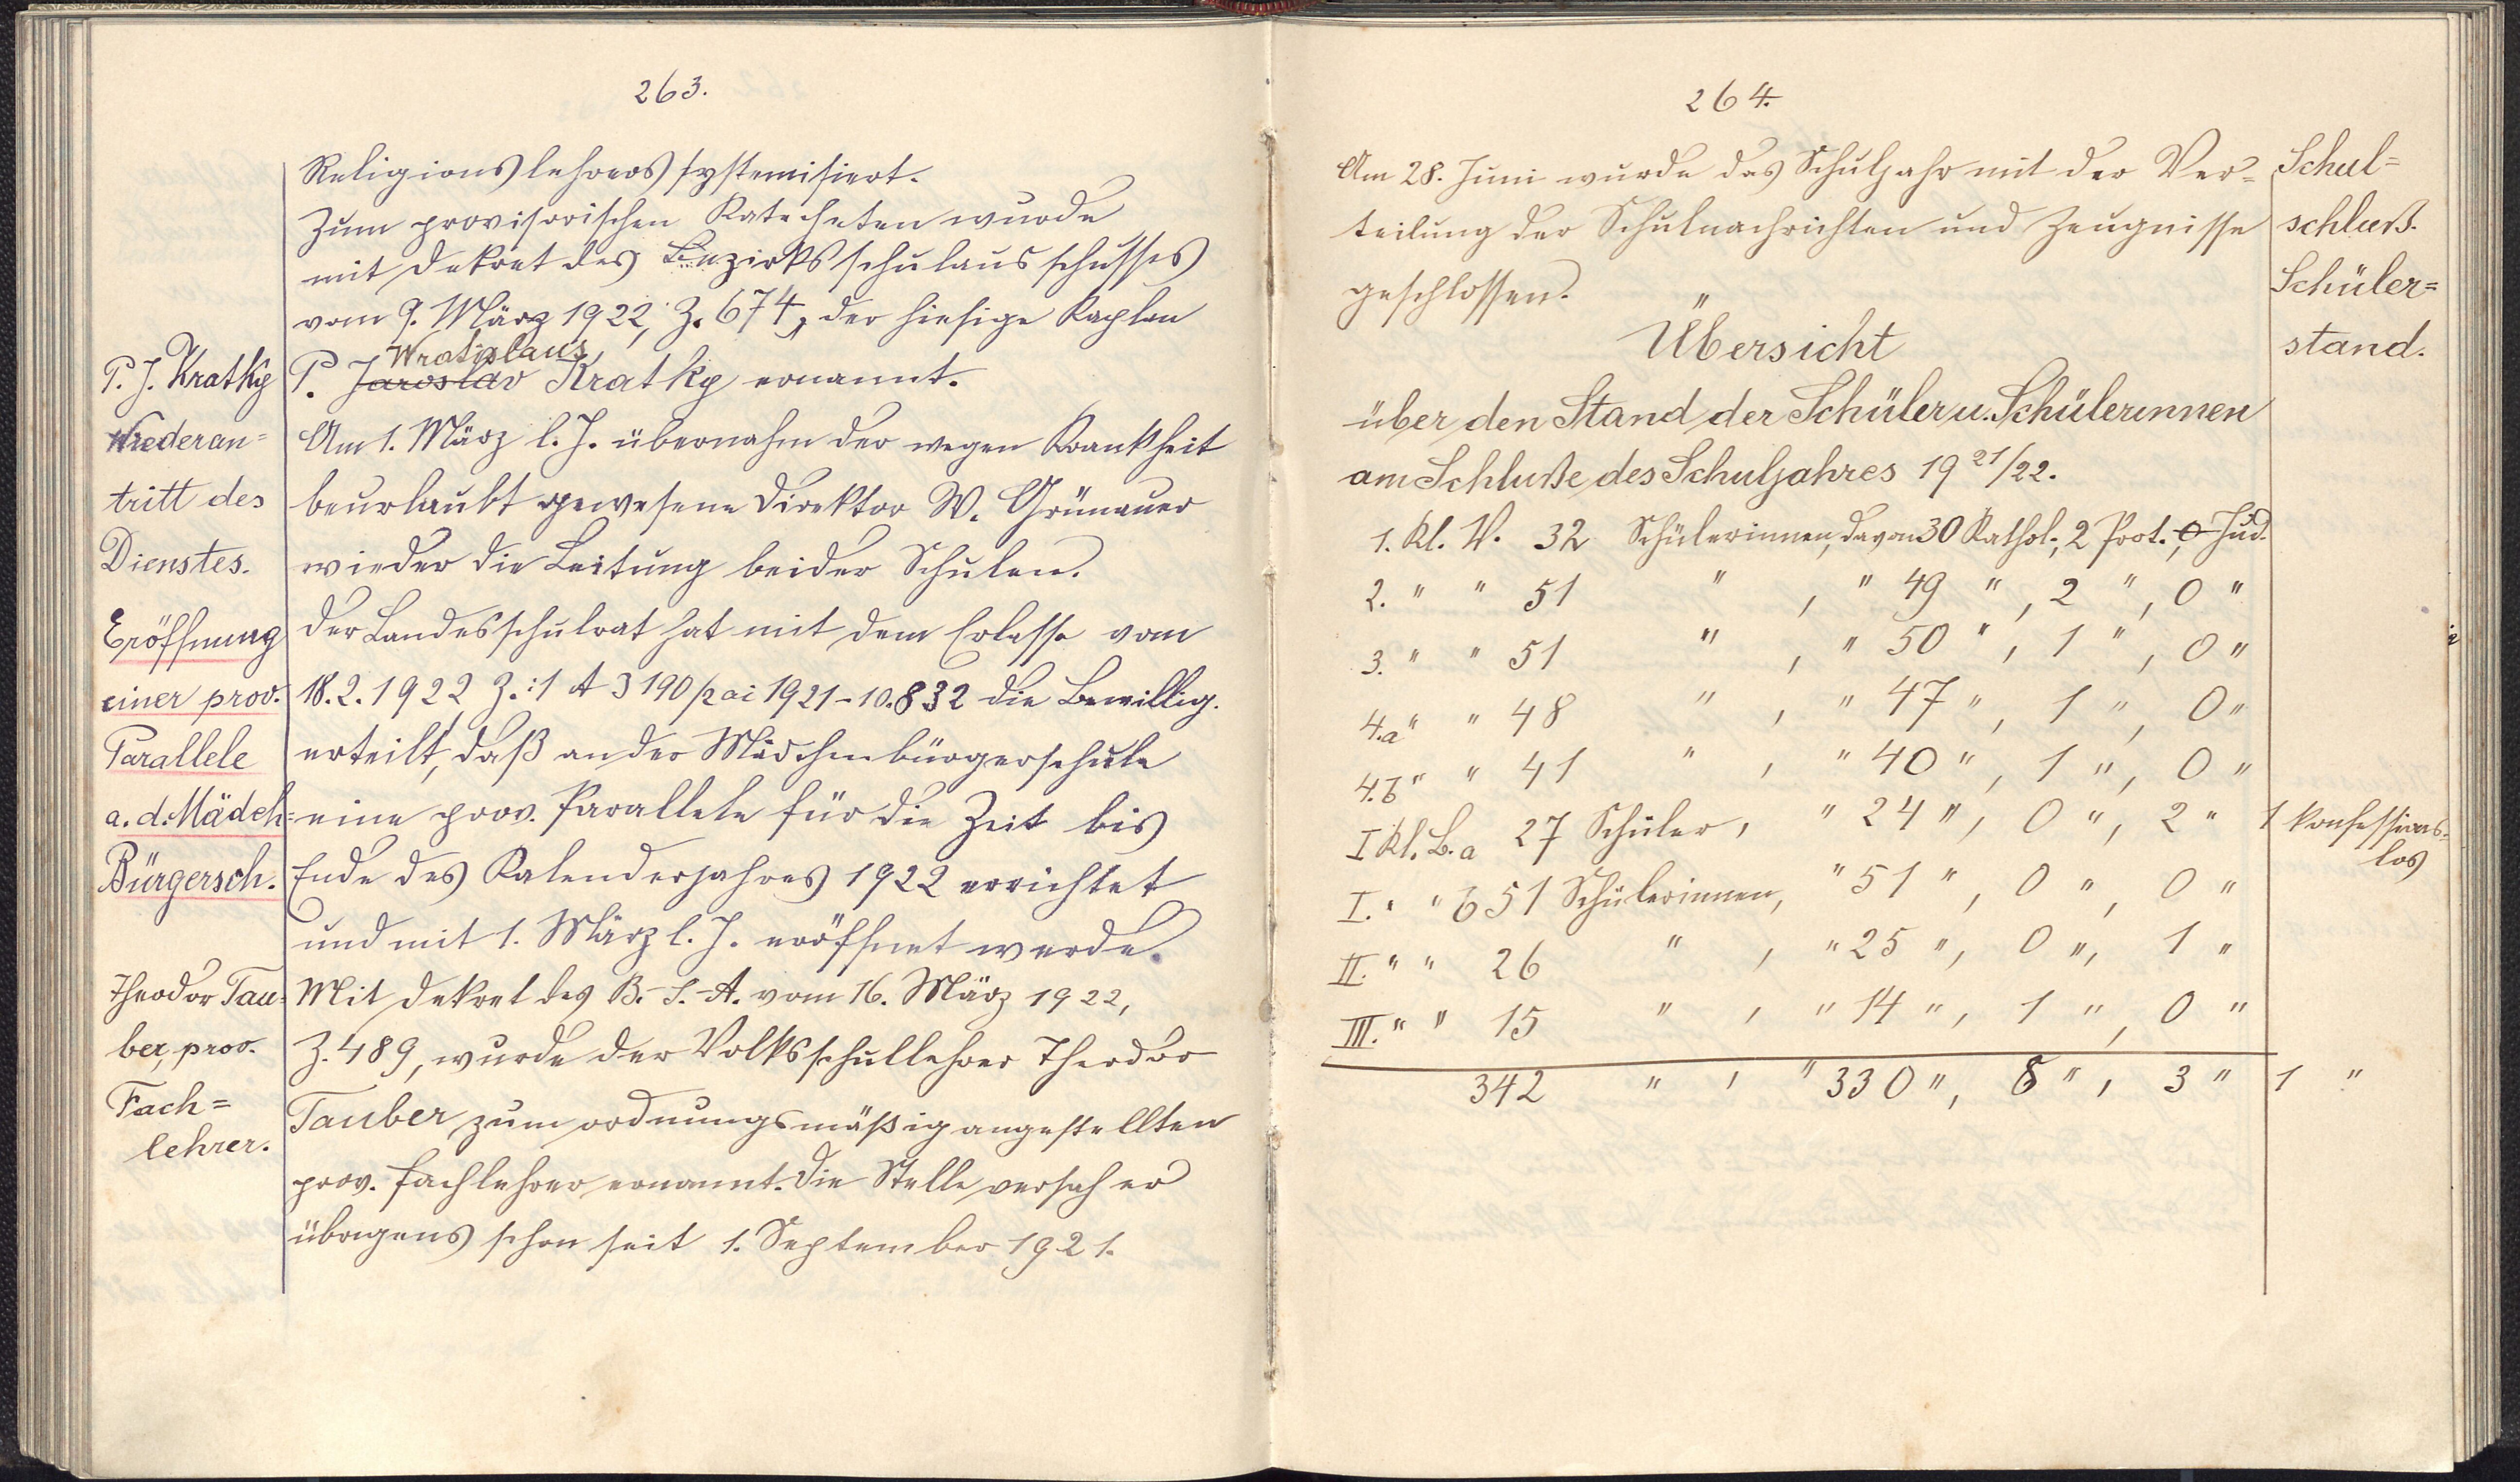 263.
Religionslehrers systemisiert.
Zum provisorischen Katecheten wurde
mit Dekret des Bezirksschulausschusses
vom 9. März 1922, Z. 674, der hiesige Kaplan
Wratislaus
P. J. Kratky
P. Jaroslav Kratky ernannt.
Wiederan=
Am 1. März l. J. übernahm der wegen Krankheit
tritt des
beurlaubt gewesene Direktor W. Grünauer
Dienstes.
wieder die Leitung beider Schulen.
Eröffnung
Der Landesschulrat hat mit dem Erlasse vom
einer prov.
18. 2. 1922 Z.: 1 A 3190/2 ai 1921 - 10.832 die Bewillig.
Parallele
erteilt, daß an der Mädchenbürgerschule
a. d. Mädch=
eine prov. Parallele für die Zeit bis
Bürgersch.
Ende des Kalenderjahres 1922 errichtet
und mit 1. März l. J. eröffnet werde.
Theodor Tau=
Mit Dekret des B.-S.-A. vom 16. März 1922,
ber, prov.
Z. 489, wurde der Volksschullehrer Theodor
Fach=
Tauber zum ordnungsmäßig angestellten
lehrer.
prov. Fachlehrer ernannt. Die Stelle versah er
übrigens schon seit 1. September 1921.
264.
Am 28. Juni wurde das Schuljahr mit der Ver=
Schul=
teilung der Schulnachrichten und Zeugnisse
schluß.
geschlossen.
Schüler=
Übersicht
stand.
über den Stand der Schüler u. Schülerinnen
am Schluße des Schuljahres 19 21/22.
1. Kl. V. 32 Schülerinnen, davon 30 Kathol., 2 Prot., 0 Jüd.
2. " " 51 " , " 49 " , 2 " , 0 "
3. " " 51 " , " 50 " , 1 " , 0 "
4.a " " 48 " , " 47 " , 1 " , 0 "
4.b " " 41 " , " 40 " , 1 " , 0 "
I Kl. B. a 27 Schüler, " 24 " , 0 " , 2 " 1 konfessions-
los
I. " " b 51 Schülerinnen, " 51 " , 0 " , 0 "
II. " " 26 " , " 25 " , 0 " , 1 "
III. " " 15 " , " 14 " , 1 " , 0 "
342 " , " 330 " , 8 " , 3 " 1 "